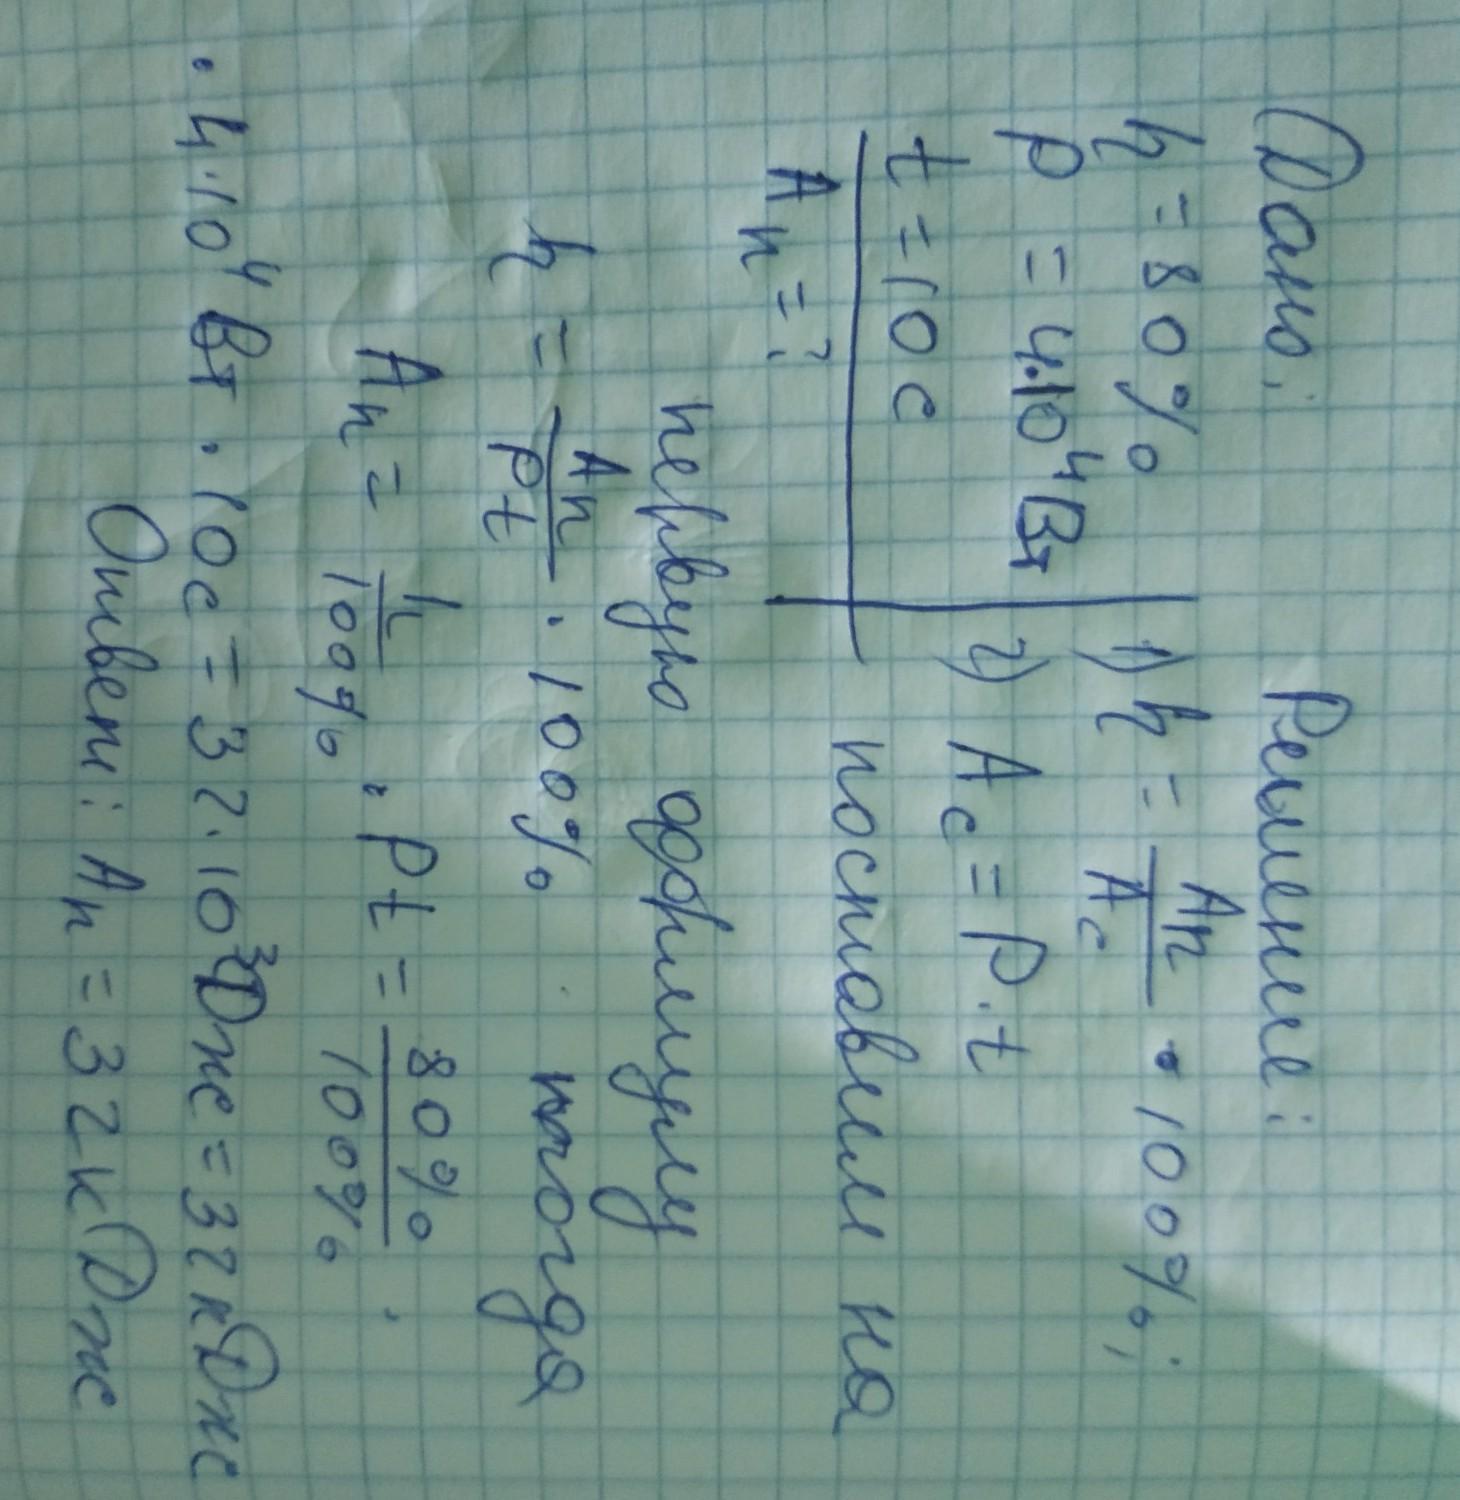 Дано:
η = 80%
P = 4·10⁴Вт
t = 10 c
Aп = ?
Решение:
1) η = Aп/Ac · 100%;
2) Ac = P·t
поставим на
первую формулу
η = Aп/Pt · 100% тогда
Aп = η/100% · Pt = 80%/100% ·
· 4·10⁴ Вт · 10c = 32·10³Дже = 32кДже
Ответ: Aп = 32кДже